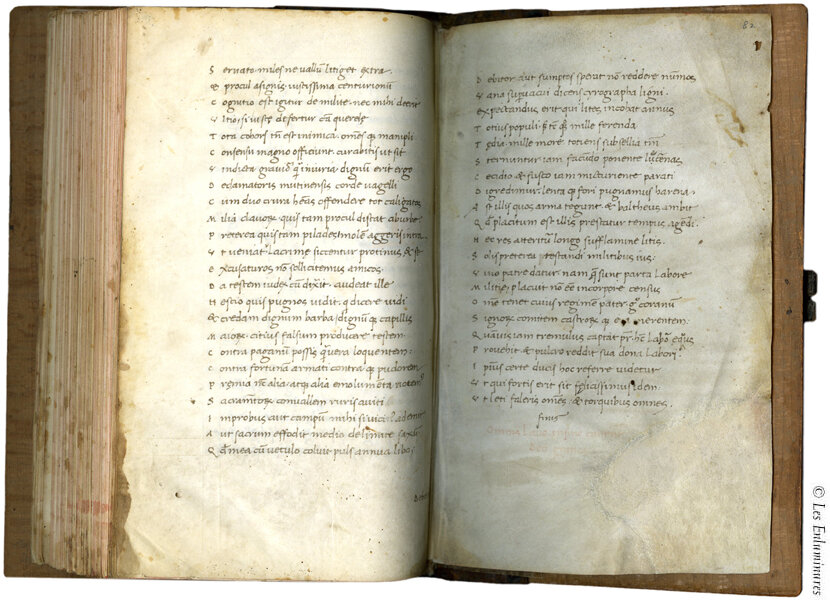 S ervato miles ne vallũ litiget extra
& procul a signis. iustissima centurionũ
C ognitio est igitur de milite. nec mihi deerit
V ltio. si iustę defertur cã querelę
T ota cohors tñ est inimica. om̃es q; manipli
C onsensu magno officiunt. curabitis ut sit
V indicta gravior q̃ iniuria. dignũ erit ergo
D eclamatoris mutinensis corde vagelli
C um duo crura hẽas offendere tot caligatos
M ilia clavorꝝ. quis tam procul distat ab urbe
P reterea quis tam pilades molẽ aggeris intra
V t veniat. Lacrime siccentur protinus & se
E xcusaturos nõ sollicitemus amicos
D a testem iudex cũ dixit. audeat ille
N escio quis pugnos vidit. q dicere vidi
Et credam dignum barba / dignũ q; capillis
M aiorꝝ. citius falsum producere testem
C ontra paganũ possis. q̃ vera loquentem.
C ontra fortunã armati contra q; pudorem.
P remia nc̃ alia. atq; alia emolumẽta notem'
S acramẽtorꝝ convallem ruris aviti
I mprobus aut campũ mihi si vicinꝰ ademit
A ut sacrum effodit medio de limite saxũ
Q đ mea cũ vetulo coluit puls annua libo.
82
D ebitor aut sumptos sperat nõ reddere nũmos
V ana supvacui dicens cyrographa ligni.
Expectandus erit qui lites incohat annus
T otius populi. s; tc̃ q; mille ferenda
T edia. mille morę. totiens subsellia tm̃
S ternuntur iam facundo ponente lucernas
C edicio & fusco iam micturiente parati
D igredimur. lenta q; fori pugnamus harena.
A st illis quos arma tegunt. & baltheus ambit
Q đ placitum est illis prestatur tempus agẽdi.
N ec res atteritũ longo sufflamine litis.
S olis preterea testandi militibus ius.
V ivo patre datur nam q̃ sunt parta labore
M ilitię placuit nõ eẽ incorpore census
O mne tenet cuius regimẽ pater. gͦ coranũ
S ignorꝝ comitem castrorꝝ q; era merentem.
Q uavis iam tremulus captat pr̃ hc̃ labor equus
P rovehit & pulcro reddit sua dona labori.
I pius certe ducis hoc referre videtur
V t qui fortis erit sit felicissimus idem.
V t leti faleris om̃es & torquibus omnes.
finis
© Les Enluminures